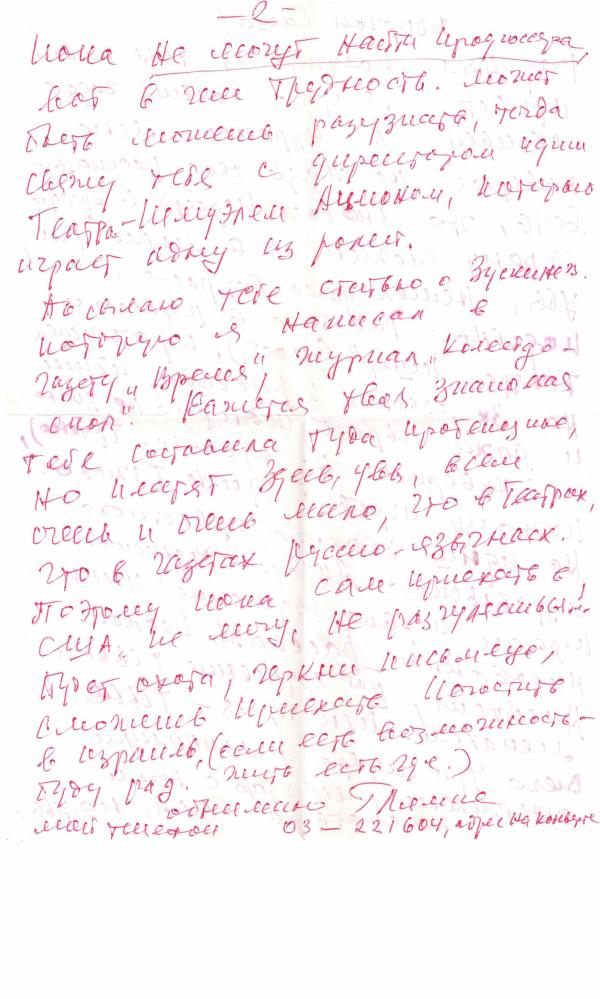 — 2 —
пока не могут найти продюсера,
вот в чем трудность. Может
быть можешь разузнать, тогда
свяжу тебя с директором идиш
театра - Шмуэлем Ацмоном, который
играет одну из ролей.
Посылаю тебе статью о Зускине.
которую я написал в
газету „Время", журнал „Калейдо-
скоп". Кажется твоя знакомая
тебе составила туда протекцию,
но платят здесь, увы, всем
очень и очень мало, что в театрах,
что в газетах русско-язычных.
Поэтому пока сам приехать в
США не могу, не разгуляешься.
Будет охота, черкни письмецо,
сможешь приехать погостить
в Израиль, (если есть возможность -
буду рад. Жить есть где.)
обнимаю
мой телефон 03 - 221604, адрес на конверте